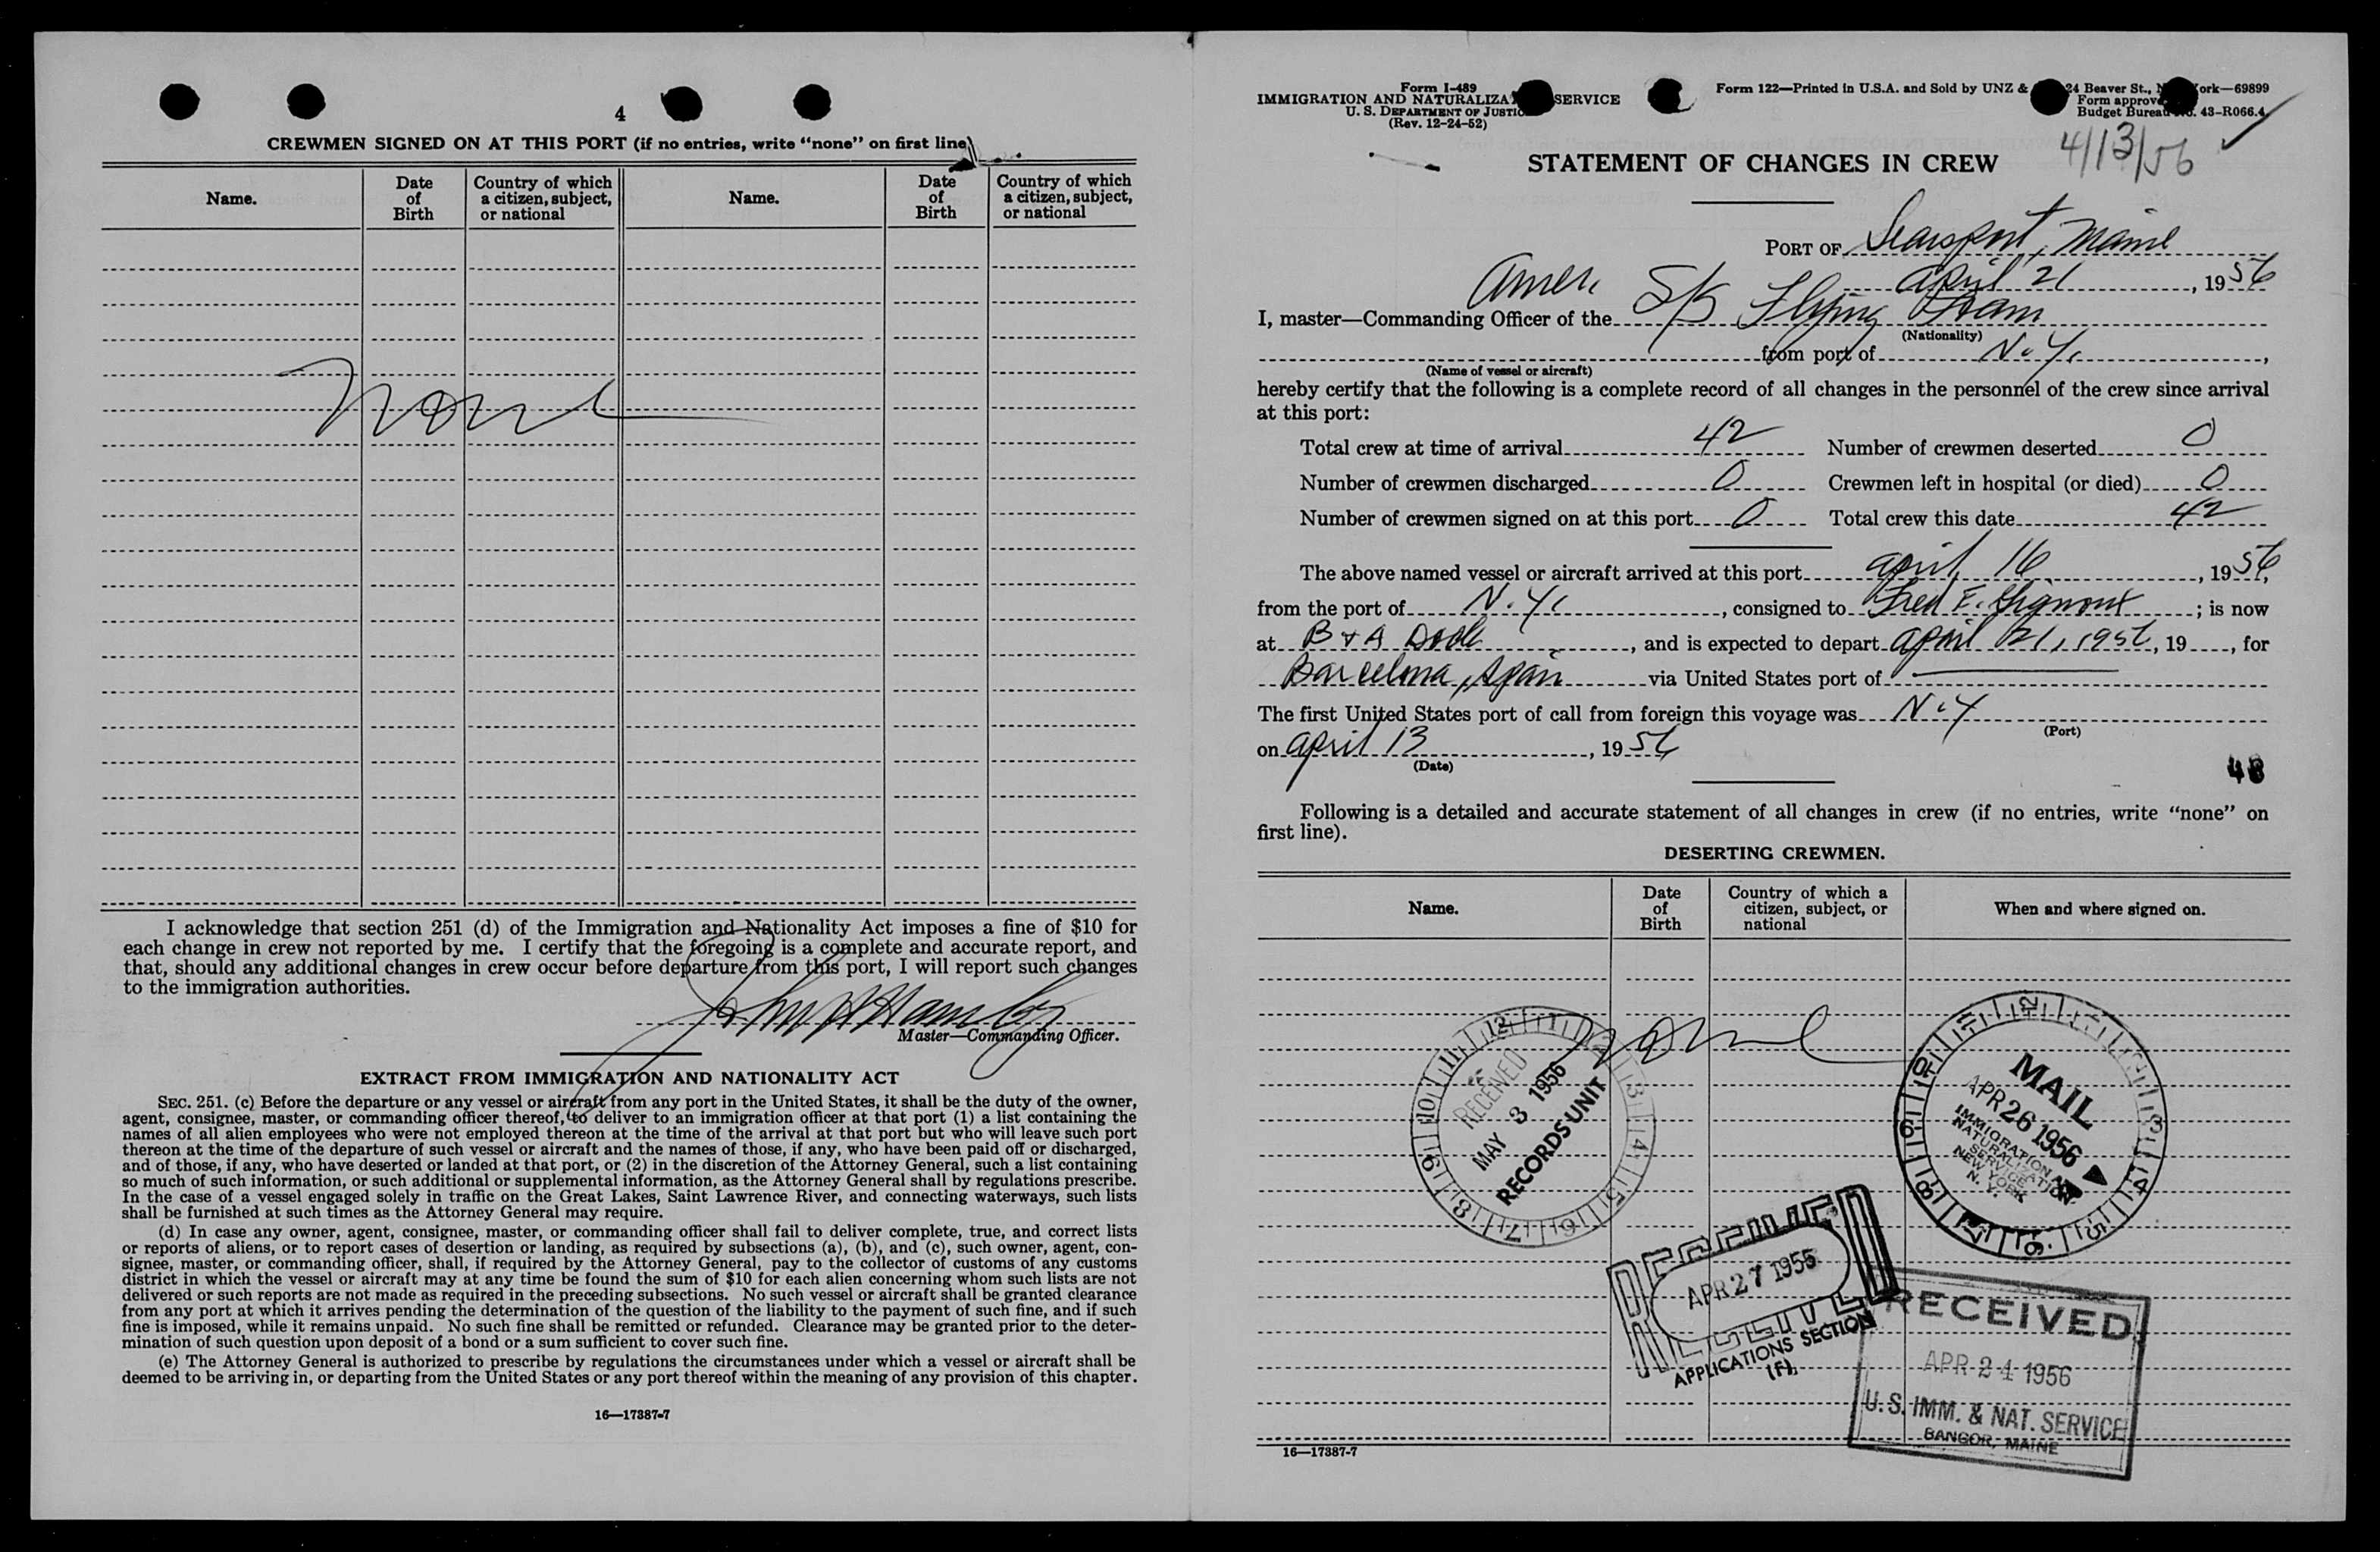 4
CREWMEN SIGNED ON AT THIS PORT (if no entries, write “none” on first line)
Name. Date of Birth Country of which a citizen, subject, or national Name. Date of Birth Country of which a citizen, subject, or national
None
I acknowledge that section 251 (d) of the Immigration and Nationality Act imposes a fine of $10 for
each change in crew not reported by me. I certify that the foregoing is a complete and accurate report, and
that, should any additional changes in crew occur before departure from this port, I will report such changes
to the immigration authorities.
Master—Commanding Officer.
EXTRACT FROM IMMIGRATION AND NATIONALITY ACT
SEC. 251. (c) Before the departure or any vessel or aircraft from any port in the United States, it shall be the duty of the owner,
agent, consignee, master, or commanding officer thereof, to deliver to an immigration officer at that port (1) a list containing the
names of all alien employees who were not employed thereon at the time of the arrival at that port but who will leave such port
thereon at the time of the departure of such vessel or aircraft and the names of those, if any, who have been paid off or discharged,
and of those, if any, who have deserted or landed at that port, or (2) in the discretion of the Attorney General, such a list containing
so much of such information, or such additional or supplemental information, as the Attorney General shall by regulations prescribe.
In the case of a vessel engaged solely in traffic on the Great Lakes, Saint Lawrence River, and connecting waterways, such lists
shall be furnished at such times as the Attorney General may require.
(d) In case any owner, agent, consignee, master, or commanding officer shall fail to deliver complete, true, and correct lists
or reports of aliens, or to report cases of desertion or landing, as required by subsections (a), (b), and (c), such owner, agent, con-
signee, master, or commanding officer, shall, if required by the Attorney General, pay to the collector of customs of any customs
district in which the vessel or aircraft may at any time be found the sum of $10 for each alien concerning whom such lists are not
delivered or such reports are not made as required in the preceding subsections. No such vessel or aircraft shall be granted clearance
from any port at which it arrives pending the determination of the question of the liability to the payment of such fine, and if such
fine is imposed, while it remains unpaid. No such fine shall be remitted or refunded. Clearance may be granted prior to the deter-
mination of such question upon deposit of a bond or a sum sufficient to cover such fine.
(e) The Attorney General is authorized to prescribe by regulations the circumstances under which a vessel or aircraft shall be
deemed to be arriving in, or departing from the United States or any port thereof within the meaning of any provision of this chapter.
16—17387-7
Form I-489
IMMIGRATION AND NATURALIZA SERVICE
U. S. DEPARTMENT OF JUSTIC
(Rev. 12-24-52)
Form 122—Printed in U.S.A. and Sold by UNZ & 24 Beaver St., N ork—69899
Form approve
Budget Bureau No. 43-R066.4
4/13/56
STATEMENT OF CHANGES IN CREW
PORT OF Searsport, Maine
April 21, 1956
I, master—Commanding Officer of the Amer. S/S Flying Foam
(Nationality)
from port of N.Y.,
(Name of vessel or aircraft)
hereby certify that the following is a complete record of all changes in the personnel of the crew since arrival
at this port:
Total crew at time of arrival 42 Number of crewmen deserted 0
Number of crewmen discharged 0 Crewmen left in hospital (or died) 0
Number of crewmen signed on at this port 0 Total crew this date 42
The above named vessel or aircraft arrived at this port April 16, 1956,
from the port of N.Y., consigned to Fred E.; is now
at B & A Dock, and is expected to depart April 21, 1956, 19, for
Barcelona, Spain via United States port of —
The first United States port of call from foreign this voyage was N.Y
(Port)
on April 13, 1956
(Date)
48
Following is a detailed and accurate statement of all changes in crew (if no entries, write “none” on
first line).
DESERTING CREWMEN.
Name. Date of Birth Country of which a citizen, subject, or national When and where signed on.
None
12 1 2 3 4 5 6 7 8 9 10 11
RECEIVED
MAY 3 1956
RECORDS UNIT
12 1 2 3 4 5 6 7 8 9 10 11
MAIL
APR 26 1956
IMMIGRATION AND
NATURALIZATION
SERVICE
NEW YORK
N. Y.
RECEIVED
APR 27 1956
RECEIVED
APPLICATIONS SECTION
(F)
RECEIVED
APR 24 1956
U. S. IMM. & NAT. SERVICE
BANGOR, MAINE
16—17387-7